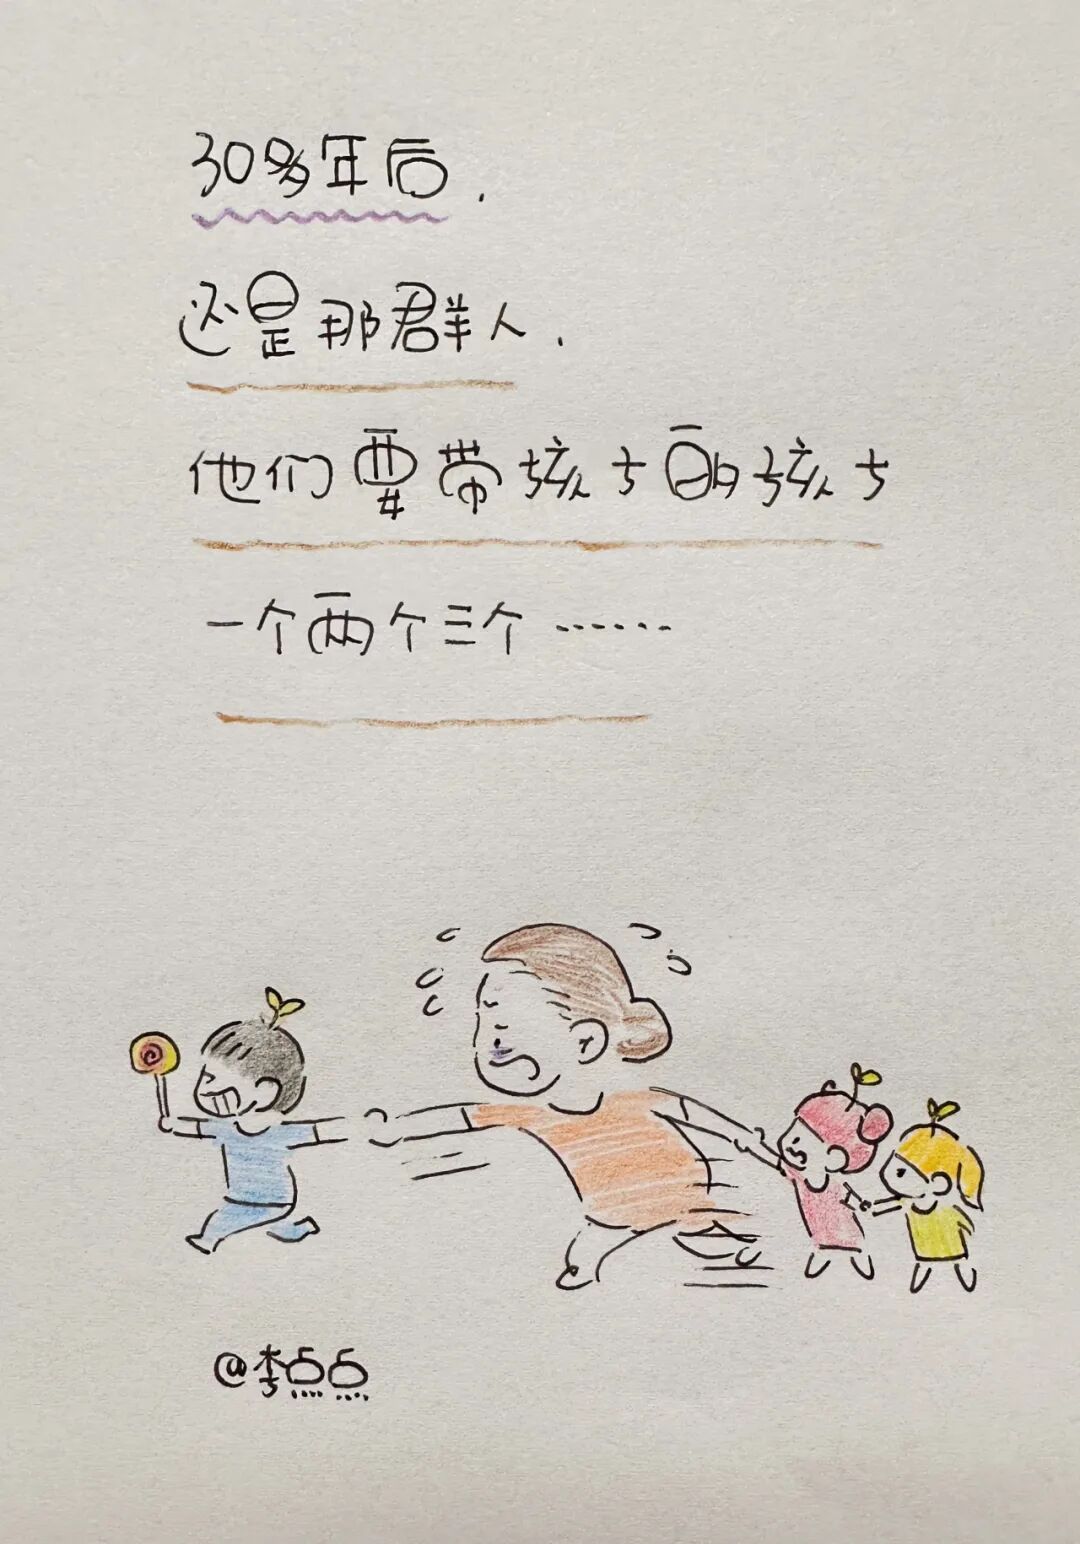 30多年后.
还是那群人.
他们要带孩子的孩子
一个两个三个……
@李点点